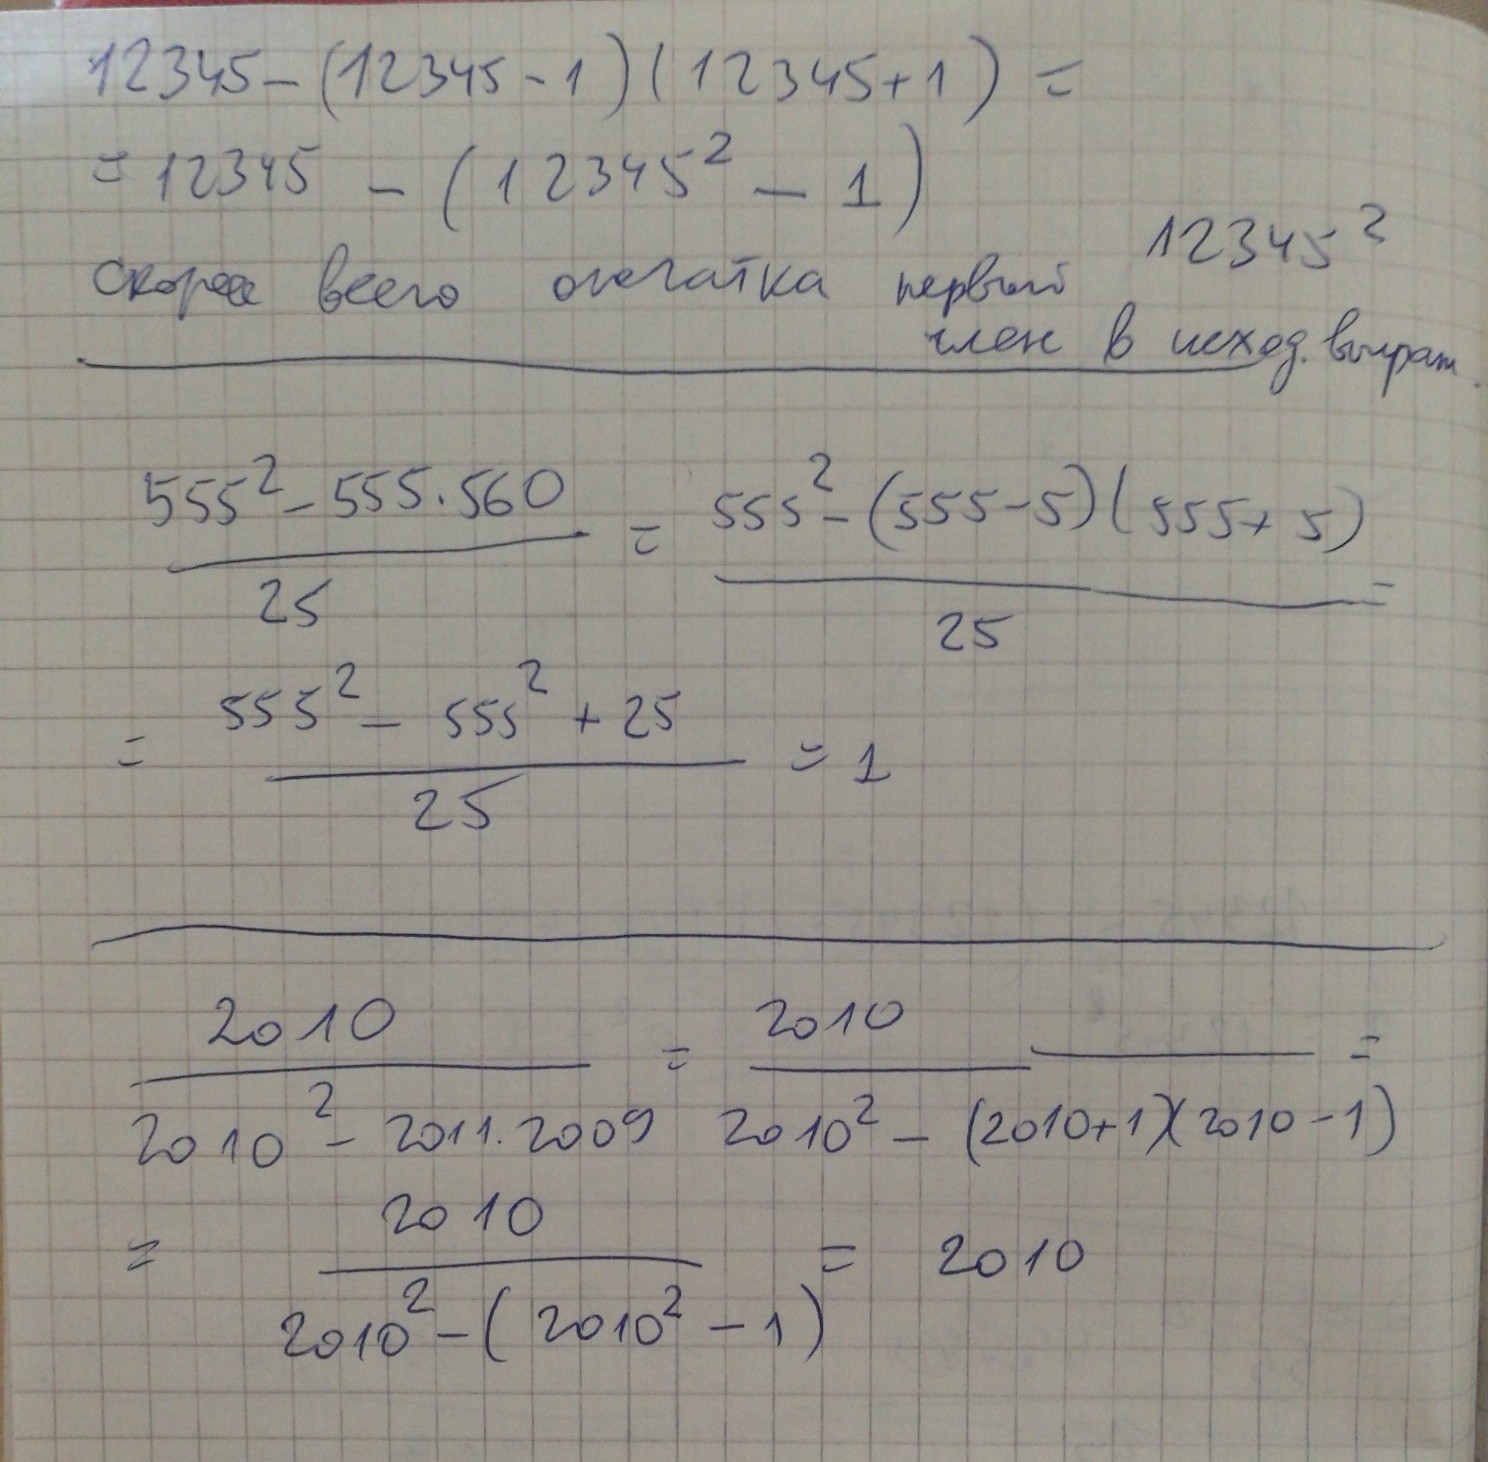 12345-(12345-1)(12345+1)=
=12345 - (12345² - 1)
скорее всего опечатка первый 12345²
член в исход. выраж.
555² - 555·560 / 25 = 555² - (555-5)(555+5) / 25 =
= 555² - 555² + 25 / 25 = 1
2010 / 2010² - 2011·2009 = 2010 / 2010² - (2010+1)(2010-1) =
= 2010 / 2010² - (2010² - 1) = 2010